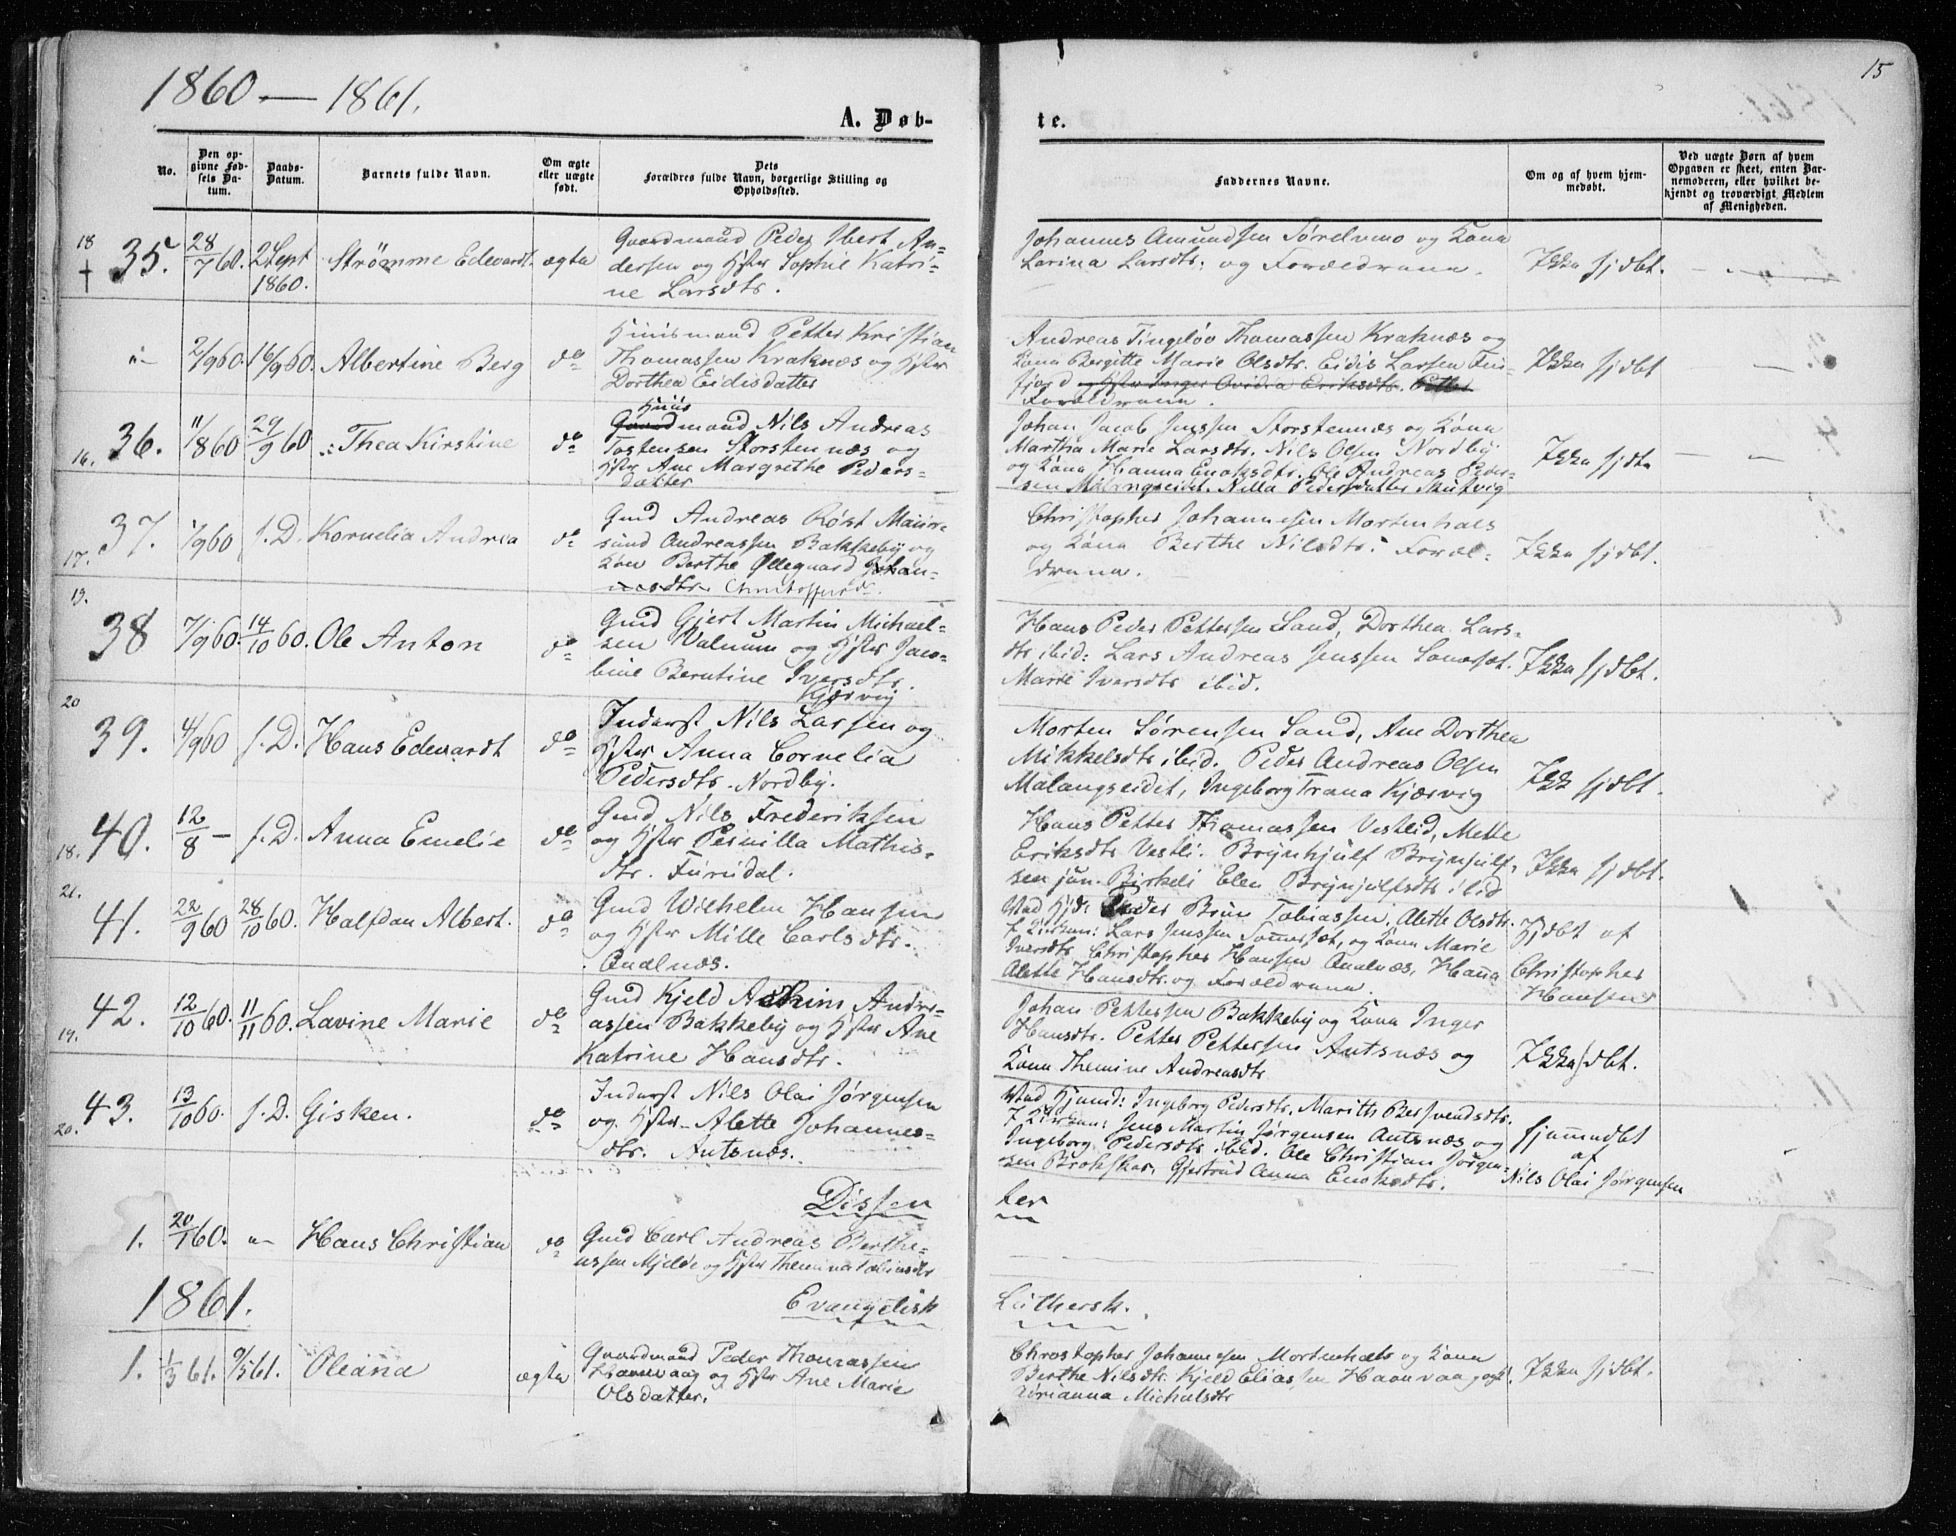 1860 — 1861.
15
A. Døb-
te.
No.
Den op-
givne Fød-
sels Da-
tum.
Daabs-
Datum.
Barnets fulde Navn.
Om ægte
eller uægte
født.
Dets
Forældres fulde Navn, borgerlige Stilling og
Opholdssted.
Faddernes Navne.
Om og af hvem hjem-
medøbt.
Ved uægte Børn af hvem
Opgaven er skeet, enten Bar-
nemoderen, eller hvilket be-
kjendt og troværdigt Medlem
af Menigheden.
18
† 35. 28/7 60. 2 Sept 1860. Strømme Edevardt. ægte
Gaardmand Peder Ibert An-
dersen og Hstr Sophie Katri-
ne Larsdtr.
Johannes Amundsen Sørelvmo og Kona
Larina Larsdtr. og Forældrene.
Ikke hjdbt.
"— 2/9 60. 16/9 60. Albertine Berg do
Huusmand Petter Kristian
Thomassen Kraknæs og Hstr
Dorthea Eidisdatter
Andreas Tingeløv Thomassen Kraknæs og
Kona Bergitte Marie Olsdtr. Eidis Larsen Fin-
fjord og Hstr Inger Ovidia Eriksdtr. Petter
Forældrene.
Ikke hjdbt
16. 36. 11/8 60 29/9 60 Thea Kirstine do
Huus
Gaardmand Nils Andreas
Tostensen Storstennæs og
Hstr Ane Margrethe Peders-
datter
Johan Jacob Jenssen Storstennæs og Kona
Martha Marie Larsdtr. Nils Olsen Nordby
og Kona Hanna Enoksdtr. Ole Andreas Peder-
sen Malangseidet. Nilla Pedersdatter Skutvig
Ikke hjdbt
17. 37. 1/9 60 s.D. Kornelia Andrea do
Gmd Andreas Røst Maur-
sund Andreassen Bakkeby og
Kon Berthe Ollegaard Johan-
nesdtr. Christoffersd.
Christopher Johannesen Mortenhals
og Kona Berthe Nilsdtr. Foræl-
drene.
Ikke hjdbt.
19.
38 7/9 60. 14/10 60. Ole Anton do
Gmd Gjert Martin Michael-
sen Valnum og Hstr Jaco-
bine Berntine Iversdtr.
Hans Peder Pettersen Sand, Dorthea Lars-
dtr ibid: Lars Andreas Jenssen
Marie Iversdtr ibid.
Ikke hjdbt.
20
39. 4/9 60 s.D. Hans Edevardt do
Kjærvig
Inderst Nils Larsen og
Hstr Anna Cornelia
Pedersdtr. Nordby.
Morten Sørensen Sand, Ane Dorthea
Mikkelsdtr ibid. Peder Andreas Olsen
Malangseidet, Ingeborg Trana Kjærvig
Ikke hjdbt.
18. 40. 12/8 — s.D. Anna Emelie do
Gmd Nils Frederiksen
og Hstr Pernilla Mathis-
dtr. Furudal.
Hans Petter Thomassen Vestlid, Mette
Eriksdtr Vestli. Brynhjulf Brynjulf-
sen jun. Birkeli Elen Brynjulfsdtr ibid
Ikke hjdbt.
21.
41. 22/9 60 28/10 60. Halfdan Albert. do
Gmd Wilhelm Hansen
og Hstr Mille Carlsdtr.
Aualnæs.
Ved Hjd: Peder Brun Tobiassen, Alette Olsdtr.
I Kirken: Lars Jenssen Somerset, og Kona Marie
Iversdtr. Christopher Hansen Aualnæs, Hanna
Alette Hansdtr. og Forældrene.
Hjdbt af
Christopher
Hansen
19. 42. 12/10 60. 11/11 60. Lavine Marie do
Gmd Kjeld Andre-
assen Bakkeby og Hstr Ane
Katrine Hansdtr.
Johan Pettersen Bakkeby og Kona Inger
Hansdtr. Petter Pettersen Autsnæs og
Kona Themine Andreasdtr
Ikke hjdbt.
20. 43. 13/10 60. s.D. Gisken. do
Inderst Nils Olai Jørgensen
og Hstr Alette Johannes-
dtr. Autsnæs.
Ved Hjemd: Ingeborg Pedersdtr. Marith Bersvendsdtr.
I Kirken: Jens Martin Jørgensen Autsnæs og
Ingeborg Pedersdtr ibid. Ole Christian Jørgen-
sen Brokskar, Gjertrud Anna Enoksdtr.
hjemmedbt
af
Nils Olai Jørgensen
Dissen
ter
1. 20/1 60. "— Hans Christian do
Gmd Carl Andreas Berthe-
ussen Mjelde og Hstr Themina
1861.
Evangelisk
Luthersk.
1. 1/3 61. 9/5 61. Oleana ægte
Gaardmand Peder Thomassen
Havnvaag og Hstr Ane Marie
Olsdatter.
Christopher Johannesen Mortenhals og Kona
Berthe Nilsdtr. Kjeld Eliassen Haanvaag og
Adrianna Michalsdtr
Ikke hjdbt.